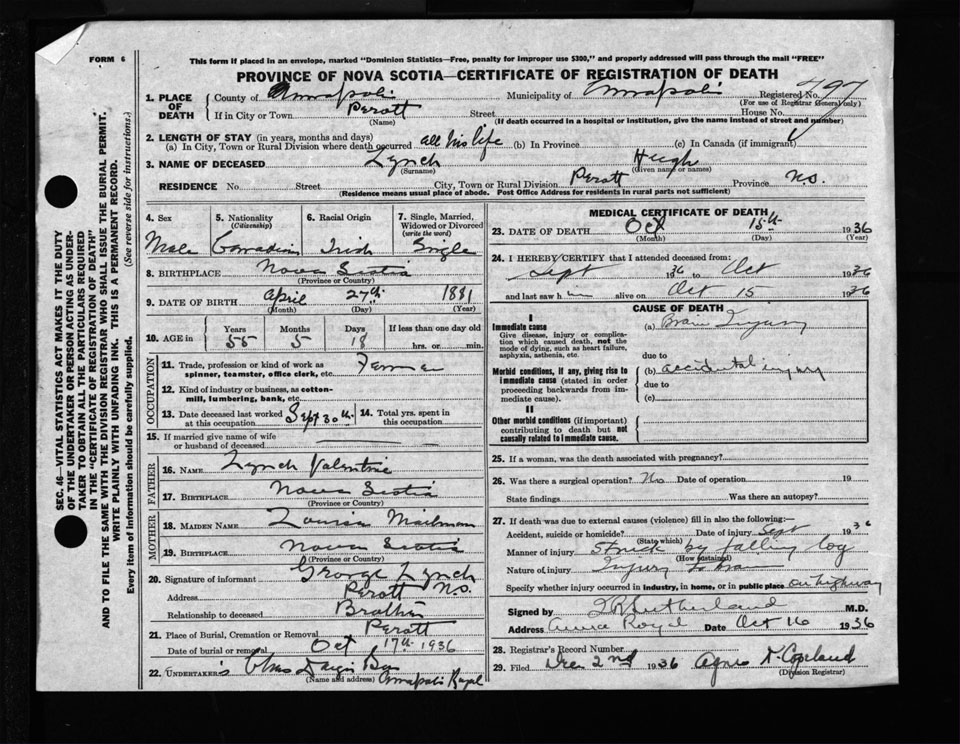 FORM 6
This form if placed in an envelope, marked "Dominion Statistics—Free, penalty for improper use $300," and properly addressed will pass through the mail "FREE"
PROVINCE OF NOVA SCOTIA—CERTIFICATE OF REGISTRATION OF DEATH
1. PLACE OF DEATH County of Annapolis Municipality of Annapolis Registered No. 497
(For use of Registrar General only)
If in City or Town Perott Street House No.
(Name) (If death occurred in a hospital or institution, give the name instead of street and number)
2. LENGTH OF STAY (in years, months and days)
(a) In City, Town or Rural Division where death occurred all his life (b) In Province (c) In Canada (if immigrant)
3. NAME OF DECEASED Lynch Hugh
(Surname) (Given name or names)
RESIDENCE No. Street City, Town or Rural Division Perott Province N.S.
(Residence means usual place of abode. Post Office Address for residents in rural parts not sufficient)
4. Sex 5. Nationality (Citizenship) 6. Racial Origin 7. Single, Married, Widowed or Divorced (write the word)
Male Canadian Irish Single
8. BIRTHPLACE Nova Scotia
(Province or Country)
9. DATE OF BIRTH April 27th 1881
(Month) (Day) (Year)
10. AGE in Years Months Days If less than one day old
55 5 18 hrs. or min.
OCCUPATION
11. Trade, profession or kind of work as spinner, teamster, office clerk, etc. Farmer
12. Kind of industry or business, as cotton-mill, lumbering, bank, etc.
13. Date deceased last worked at this occupation Sept 30th 14. Total yrs. spent in this occupation
15. If married give name of wife or husband of deceased
FATHER
16. NAME Lynch Valentine
17. BIRTHPLACE Nova Scotia
(Province or Country)
MOTHER
18. MAIDEN NAME Louisa Mailman
19. BIRTHPLACE Nova Scotia
(Province or Country)
20. Signature of informant George Lynch
Address Perott N.S.
Relationship to deceased Brother
21. Place of Burial, Cremation or Removal Perott
Date of burial or removal Oct 17th 1936
22. UNDERTAKER'S
(Name and address) Annapolis Royal
MEDICAL CERTIFICATE OF DEATH
23. DATE OF DEATH Oct 15th 1936
(Month) (Day) (Year)
24. I HEREBY CERTIFY that I attended deceased from:
Sept 1936 to Oct 1936
and last saw him alive on Oct 15 1936
CAUSE OF DEATH
I
Immediate cause (a) Brain Injury
Give disease, injury or complication which caused death, not the mode of dying, such as heart failure, asphyxia, asthenia, etc.
due to
Morbid conditions, if any, giving rise to immediate cause (stated in order proceeding backwards from immediate cause).
(b) accidental injury
due to
(c)
II
Other morbid conditions (if important) contributing to death but not causally related to immediate cause.
25. If a woman, was the death associated with pregnancy?
26. Was there a surgical operation? No Date of operation 19
State findings Was there an autopsy?
27. If death was due to external causes (violence) fill in also the following:—
Accident, suicide or homicide? Date of injury Sept 1936
(State which)
Manner of injury Struck by falling log
(How sustained)
Nature of injury Injury to brain
Specify whether injury occurred in industry, in home, or in public place on highway
Signed by Sutherland M.D.
Address Anna Royal Date Oct 16 1936
28. Registrar's Record Number
29. Filed Dec 2nd 1936 Agnes Copeland
(Division Registrar)
SEC. 46—VITAL STATISTICS ACT MAKES IT THE DUTY
OF THE UNDERTAKER OR PERSON ACTING AS UNDER-
TAKER TO OBTAIN ALL THE PARTICULARS REQUIRED
IN THE "CERTIFICATE OF REGISTRATION OF DEATH"
AND TO FILE THE SAME WITH THE DIVISION REGISTRAR WHO SHALL ISSUE THE BURIAL PERMIT.
WRITE PLAINLY WITH UNFADING INK. THIS IS A PERMANENT RECORD.
Every item of Information should be carefully supplied. (See reverse side for instructions.)